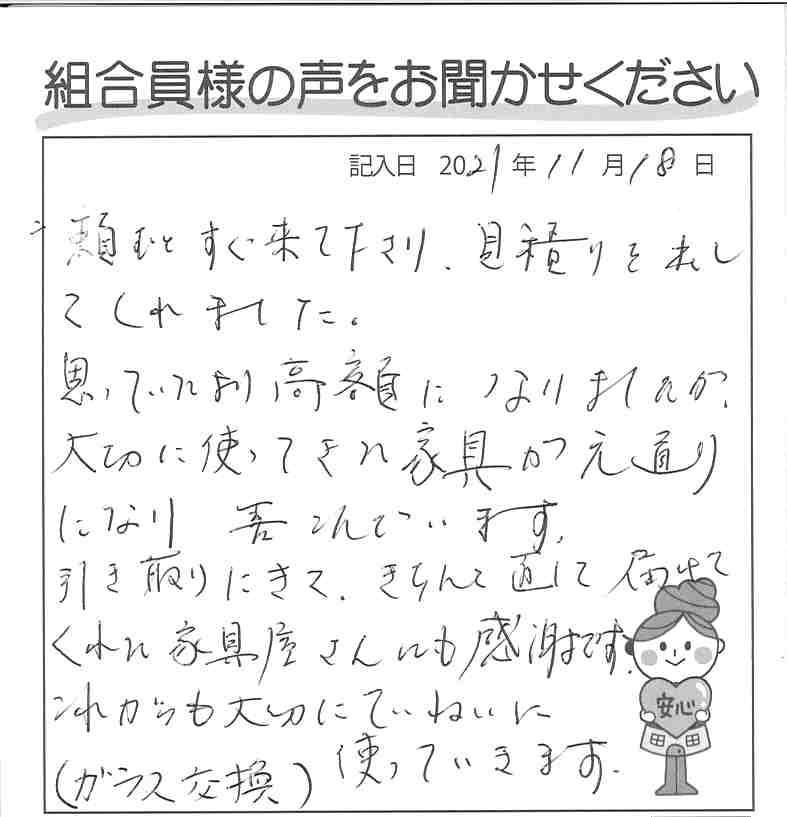 組合員様の声をお聞かせください
記入日 2021年11月18日
頼むとすぐ来て下さり、見積りを出し
てくれました。
思っていたより高額になりましたが、
大切に使ってきた家具が元通り
になり 喜こんでいます。
引き取りにきて、きちんと直して届けて
くれた家具屋さんにも感謝です。
これからも大切にていねいに
使っていきます。
(ガラス交換)
安心